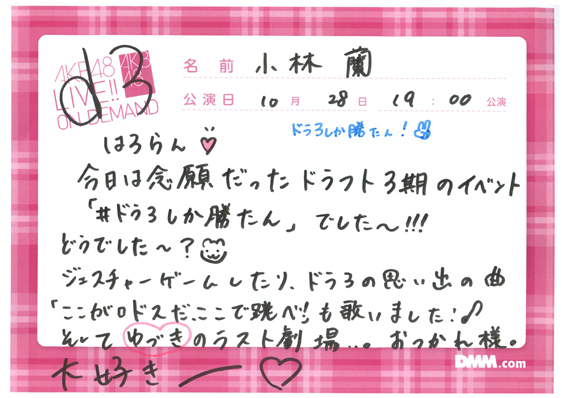 AKB48
LIVE!!
ON DEMAND
d3
名前 小林 蘭
公演日 10月 28日 19:00 公演
ドラ3しか勝たん！
はろらん
今日は念願だったドラフト3期のイベント
「#ドラ3しか勝たん」でした〜!!!
どうでした〜？
ジェスチャーゲームしたり、ドラ3の思い出の曲
「ここがロドスだ、ここで跳べ!」も歌いました！♪
そしてゆづきのラスト劇場...。おつかれ様。
大好きー♡
DMM.com